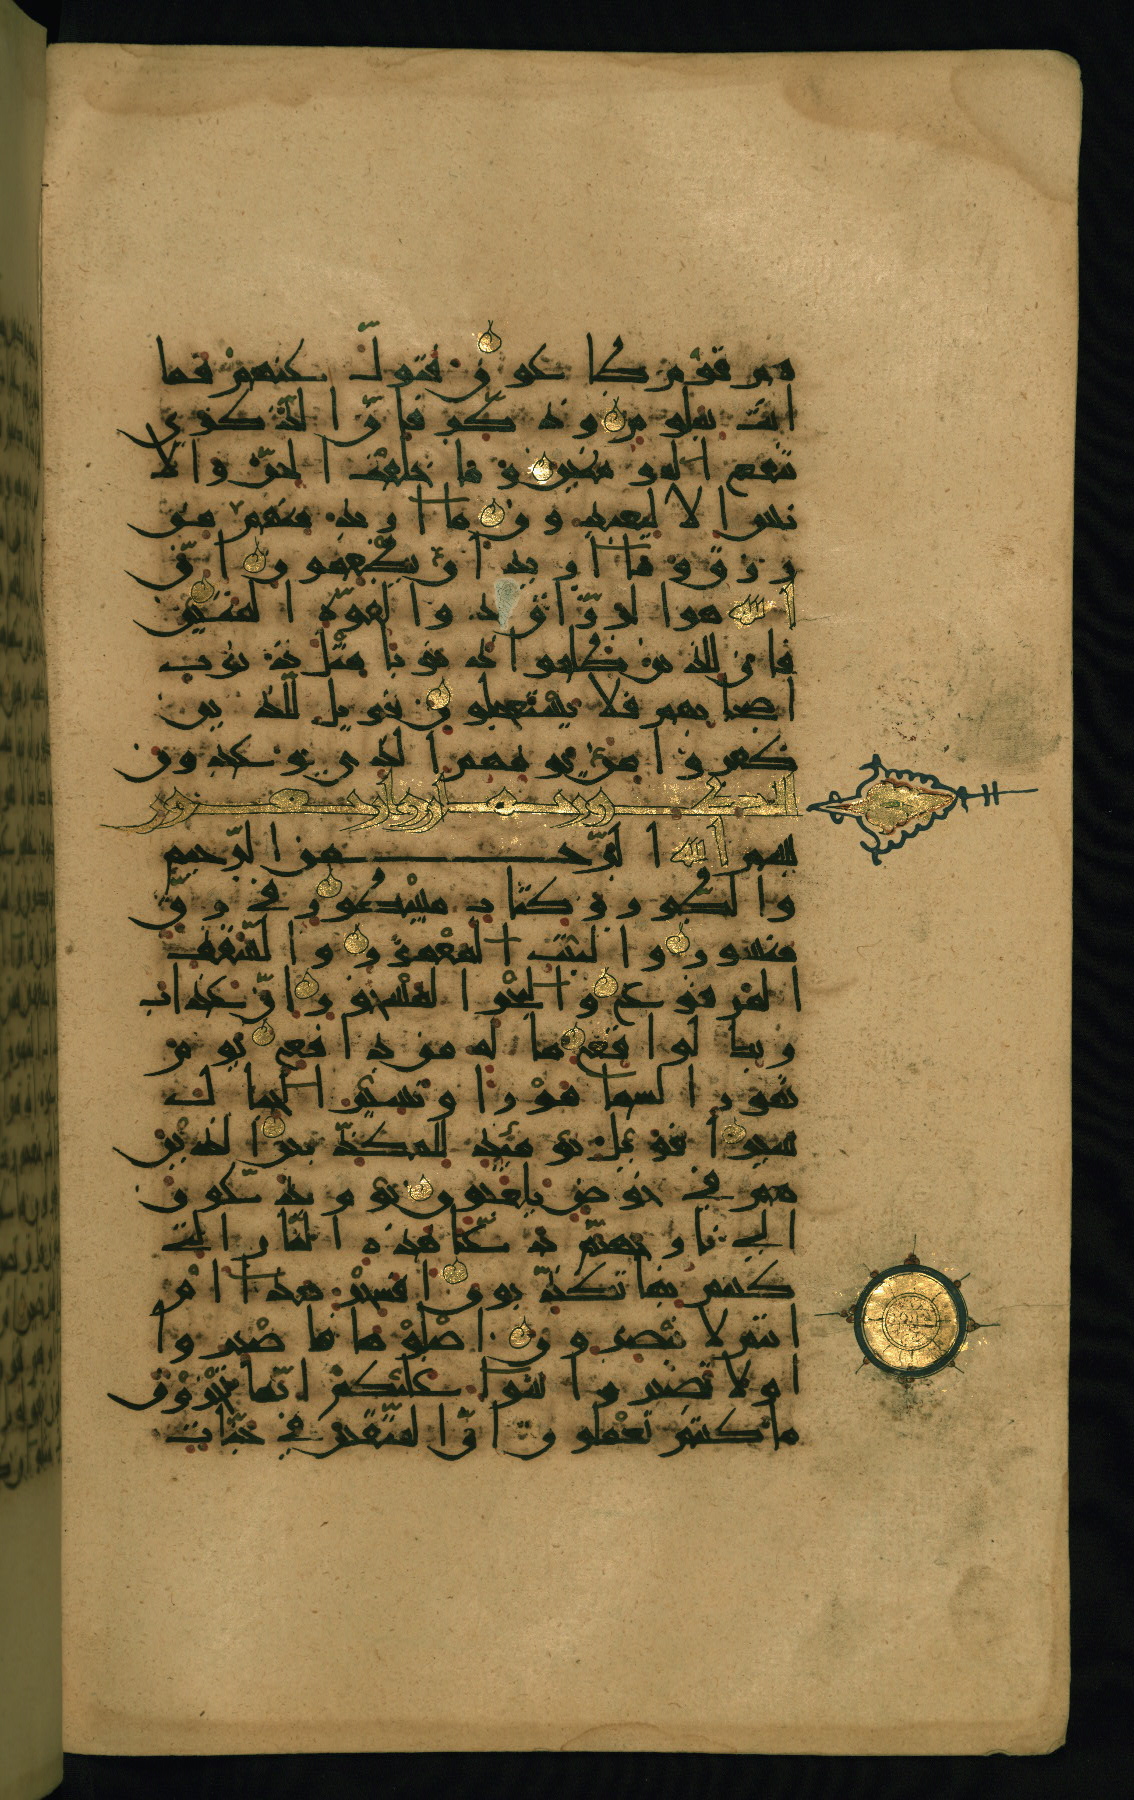 هم قوم طاغون فتول عنهم فما
انت بملوم وذكر فان الذكرى
تنفع المومنين وما خلقت الجن والا
نس الا ليعبدون ما اريد منهم من
رزق وما اريد ان يطعمون ان
الله هو الرزاق ذو القوة المتين
فان للذين ظلموا ذنوبا مثل ذنوب
اصحابهم فلا يستعجلون فويل للذين
كفروا من يومهم الذى يوعدون
بسم الله الرحمن الرحيم
والطور وكتاب مسطور في رق
منشور والبيت المعمور والسقف
المرفوع والبحر المسجور ان عذاب
ربك لواقع ما له من دافع يوم
تمور السما مورا وتسير الجبال
سيرا فويل يومئذ للمكذبين الذين
هم في خوض يلعبون يوم يدعون
الى نار جهنم دعا هذه النار التي
كنتم بها تكذبون افسحر هذا ام
انتم لا تبصرون اصلوها فاصبروا
او لا تصبروا سوا عليكم انما تجزون
ما كنتم تعملون ان المتقين في جنات